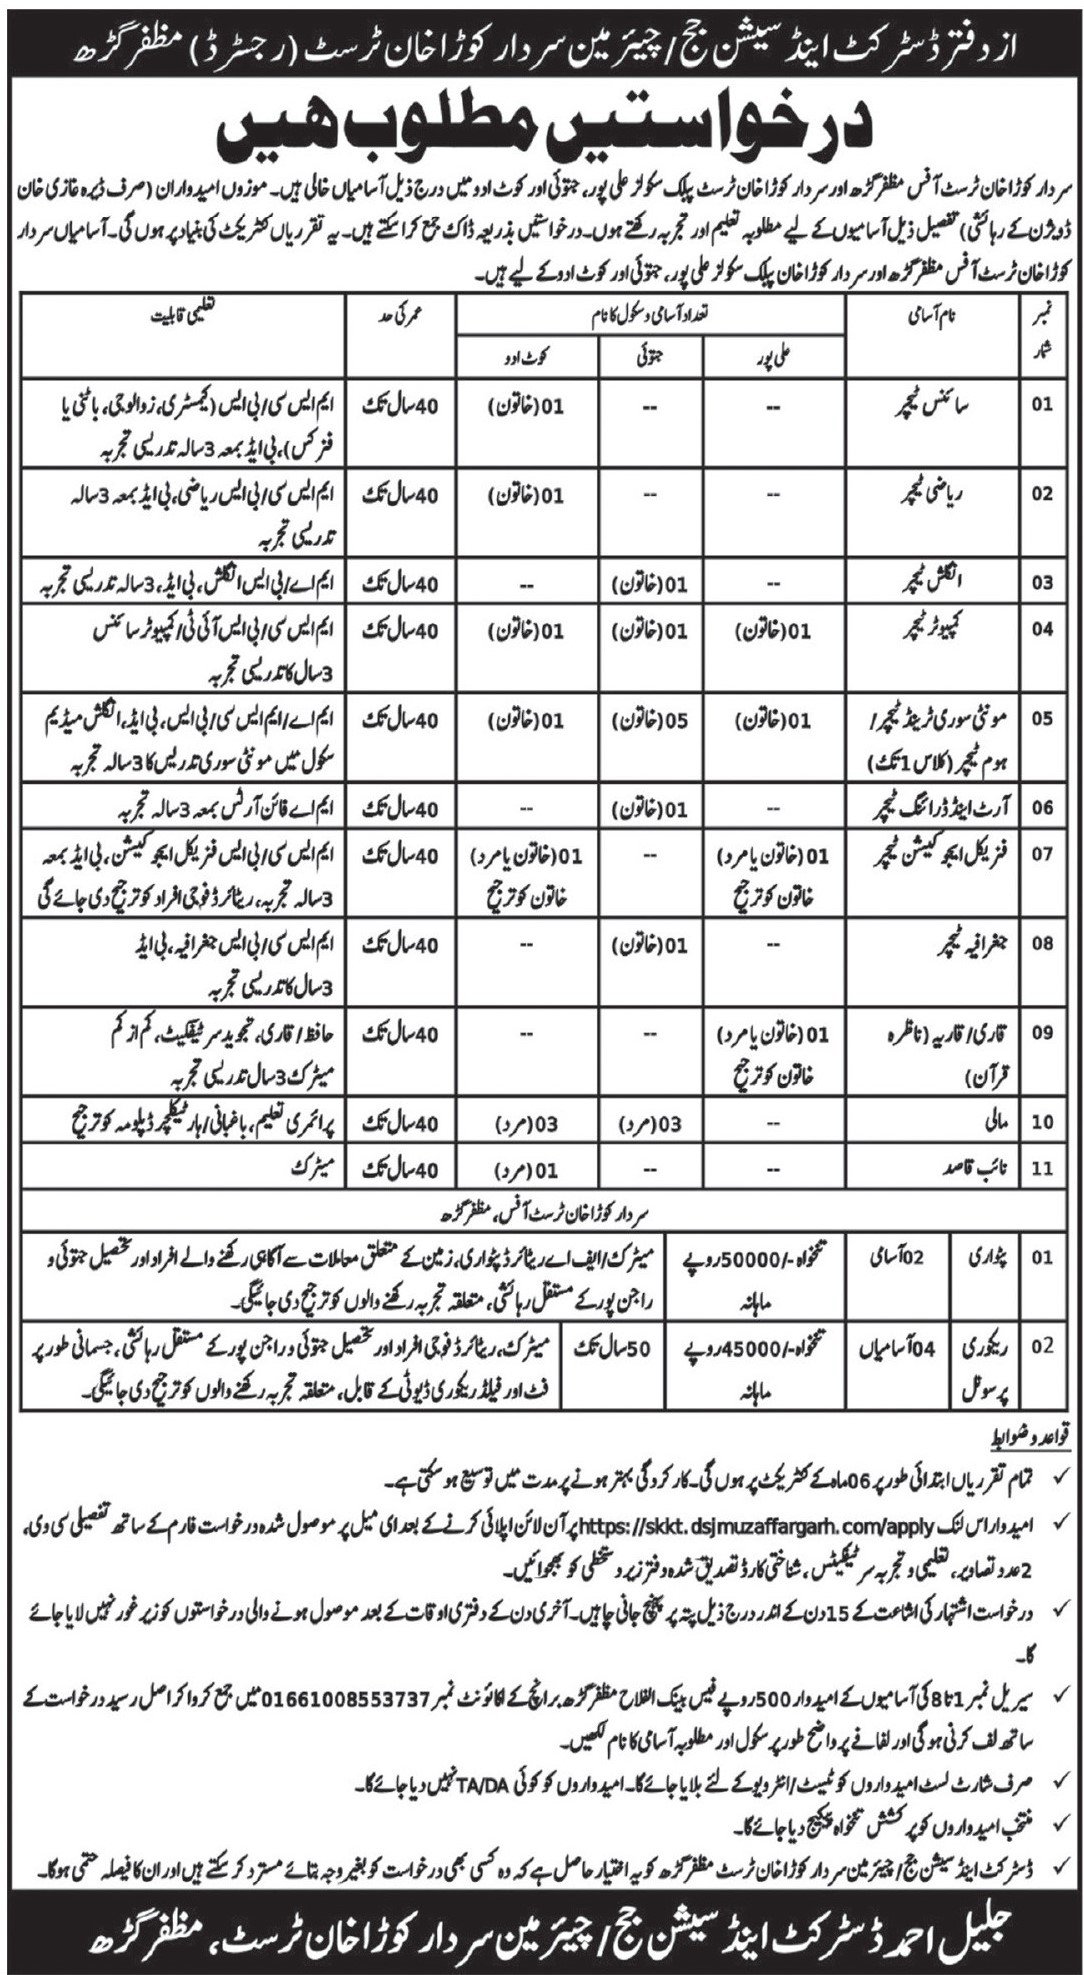 از دفتر ڈسٹرکٹ اینڈ سیشن جج/چیئرمین سردار کوڑا خان ٹرسٹ (رجسٹرڈ) مظفر گڑھ
درخواستیں مطلوب ھیں
سردار کوڑا خان ٹرسٹ آفس مظفر گڑھ اور سردار کوڑا خان ٹرسٹ پبلک سکولز علی پور، جتوئی اور کوٹ ادو میں درج ذیل آسامیاں خالی ہیں۔ موزوں امیدواران (صرف ڈیرہ غازی خان
ڈویژن کے رہائشی) تفصیل ذیل آسامیوں کے لیے مطلوبہ تعلیم اور تجربہ رکھتے ہوں۔ درخواستیں بذریعہ ڈاک جمع کرا سکتے ہیں۔ یہ تقرریاں کنٹریکٹ کی بنیاد پر ہوں گی۔ آسامیاں سردار
کوڑا خان ٹرسٹ آفس مظفر گڑھ اور سردار کوڑا خان پبلک سکولز علی پور، جتوئی اور کوٹ ادو کے لیے ہیں۔
نمبر شمار نام آسامی تعداد آسامی و سکول کا نام عمر کی حد تعلیمی قابلیت
علی پور جتوئی کوٹ ادو
01 سائنس ٹیچر -- -- 01(خاتون) 40سال تک ایم ایس سی/بی ایس (کیمسٹری، زوالوجی، باٹنی یا
فزکس)، بی ایڈ بمعہ 3سالہ تدریسی تجربہ
02 ریاضی ٹیچر -- -- 01(خاتون) 40سال تک ایم ایس سی/بی ایس ریاضی، بی ایڈ بمعہ 3سالہ
تدریسی تجربہ
03 انگلش ٹیچر -- 01(خاتون) -- 40سال تک ایم اے/بی ایس انگلش، بی ایڈ، 3سالہ تدریسی تجربہ
04 کمپیوٹر ٹیچر 01(خاتون) 01(خاتون) 01(خاتون) 40سال تک ایم ایس سی/بی ایس آئی ٹی/کمپیوٹر سائنس
3سال کا تدریسی تجربہ
05 مونٹی سوری ٹرینڈ ٹیچر/ 01(خاتون) 05(خاتون) 01(خاتون) 40سال تک ایم اے/ایم ایس سی/بی ایس، بی ایڈ، انگلش میڈیم
ہوم ٹیچر (کلاس 1 تک) سکول میں مونٹی سوری تدریس کا 3سالہ تجربہ
06 آرٹ اینڈ ڈرائنگ ٹیچر -- 01(خاتون) -- 40سال تک ایم اے فائن آرٹس بمعہ 3سالہ تجربہ
07 فزیکل ایجوکیشن ٹیچر 01(خاتون یا مرد) -- 01(خاتون یا مرد) 40سال تک ایم ایس سی/بی ایس فزیکل ایجوکیشن، بی ایڈ بمعہ
خاتون کو ترجیح خاتون کو ترجیح 3سالہ تجربہ، ریٹائرڈ فوجی افراد کو ترجیح دی جائے گی
08 جغرافیہ ٹیچر -- 01(خاتون) -- 40سال تک ایم ایس سی/بی ایس جغرافیہ، بی ایڈ
3سال کا تدریسی تجربہ
09 قاری/قاریہ (ناظرہ 01(خاتون یا مرد) -- -- 40سال تک حافظ/قاری، تجوید سرٹیفکیٹ، کم از کم
قرآن) خاتون کو ترجیح میٹرک 3سال تدریسی تجربہ
10 مالی -- 03(مرد) 03(مرد) 40سال تک پرائمری تعلیم، باغبانی/ہارٹیکلچر ڈپلومہ کو ترجیح
11 نائب قاصد -- -- 01(مرد) 40سال تک میٹرک
سردار کوڑا خان ٹرسٹ آفس، مظفر گڑھ
01 پٹواری 02آسامی تنخواہ -/50000روپے میٹرک/ایف اے ریٹائرڈ پٹواری، زمین کے متعلق معاملات سے آگاہی رکھنے والے افراد اور تحصیل جتوئی و
ماہانہ راجن پور کے مستقل رہائشی، متعلقہ تجربہ رکھنے والوں کو ترجیح دی جائیگی۔
02 ریکوری 04آسامیاں تنخواہ -/45000روپے 50سال تک میٹرک، ریٹائرڈ فوجی افراد اور تحصیل جتوئی و راجن پور کے مستقل رہائشی، جسمانی طور پر
پرسونل ماہانہ فٹ اور فیلڈ ریکوری ڈیوٹی کے قابل، متعلقہ تجربہ رکھنے والوں کو ترجیح دی جائیگی۔
قواعد و ضوابط
✓ تمام تقرریاں ابتدائی طور پر 06ماہ کے کنٹریکٹ پر ہوں گی۔ کارکردگی بہتر ہونے پر مدت میں توسیع ہو سکتی ہے۔
✓ امیدوار اس لنک https://skkt.dsjmuzaffargarh.com/apply پر آن لائن اپلائی کرنے کے بعد ای میل پر موصول شدہ درخواست فارم کے ساتھ تفصیلی سی وی،
2عدد تصاویر، تعلیمی و تجربہ سرٹیفکیٹس، شناختی کارڈ تصدیق شدہ دفتر زیر دستخطی کو بھجوائیں۔
✓ درخواست اشتہار کی اشاعت کے 15دن کے اندر درج ذیل پتہ پر پہنچ جانی چاہیں۔ آخری دن کے دفتری اوقات کے بعد موصول ہونے والی درخواستوں کو زیر غور نہیں لایا جائے
گا۔
✓ سیریل نمبر 1تا8 کی آسامیوں کے امیدوار 500روپے فیس بینک الفلاح مظفر گڑھ برانچ کے اکائونٹ نمبر 01661008553737 میں جمع کروا کر اصل رسید درخواست کے
ساتھ لف کرنی ہوگی اور لفافے پر واضح طور پر سکول اور مطلوبہ آسامی کا نام لکھیں۔
✓ صرف شارٹ لسٹ امیدواروں کو ٹیسٹ/انٹرویو کے لئے بلایا جائے گا۔ امیدواروں کو کوئی TA/DA نہیں دیا جائے گا۔
✓ منتخب امیدواروں کو پرکشش تنخواہ پیکیج دیا جائے گا۔
✓ ڈسٹرکٹ اینڈ سیشن جج/چیئرمین سردار کوڑا خان ٹرسٹ مظفر گڑھ کو یہ اختیار حاصل ہے کہ وہ کسی بھی درخواست کو بغیر وجہ بتائے مسترد کر سکتے ہیں اور ان کا فیصلہ حتمی ہوگا۔
جلیل احمد ڈسٹرکٹ اینڈ سیشن جج/چیئرمین سردار کوڑا خان ٹرسٹ، مظفر گڑھ